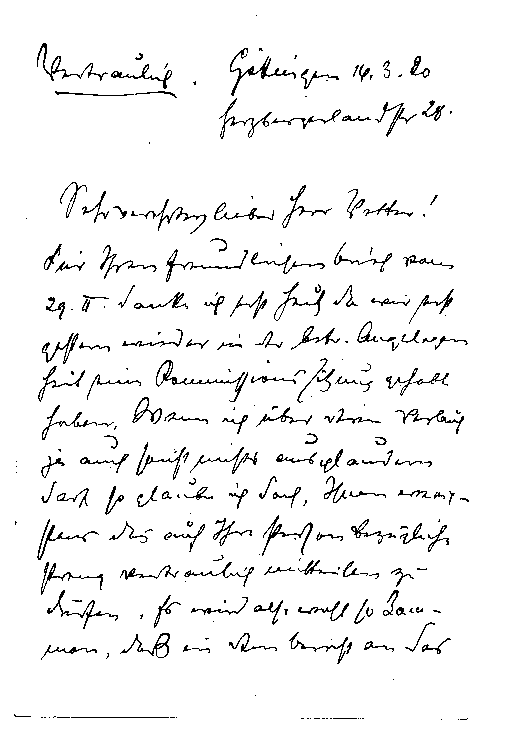 Vertraulich. Göttingen 14.3.20
Herzbergerlandstr 28.
Sehr verehrter, lieber Herr Vetter!
Für Ihren freundlichen Brief vom
29. II. danke ich erst heute da wir erst
gestern wieder in der betr. Angelegen
heit eine Kommissionssitzung gehabt
haben. Wenn ich über deren Verlauf
ja auch sonst nichts ausplaudern
darf, so glaube ich doch, Ihnen wenig-
stens das auf Ihre Person bezügliche
streng vertraulich mitteilen zu
dürfen. Es wird also wohl so kom-
men, daß in dem Bericht an das